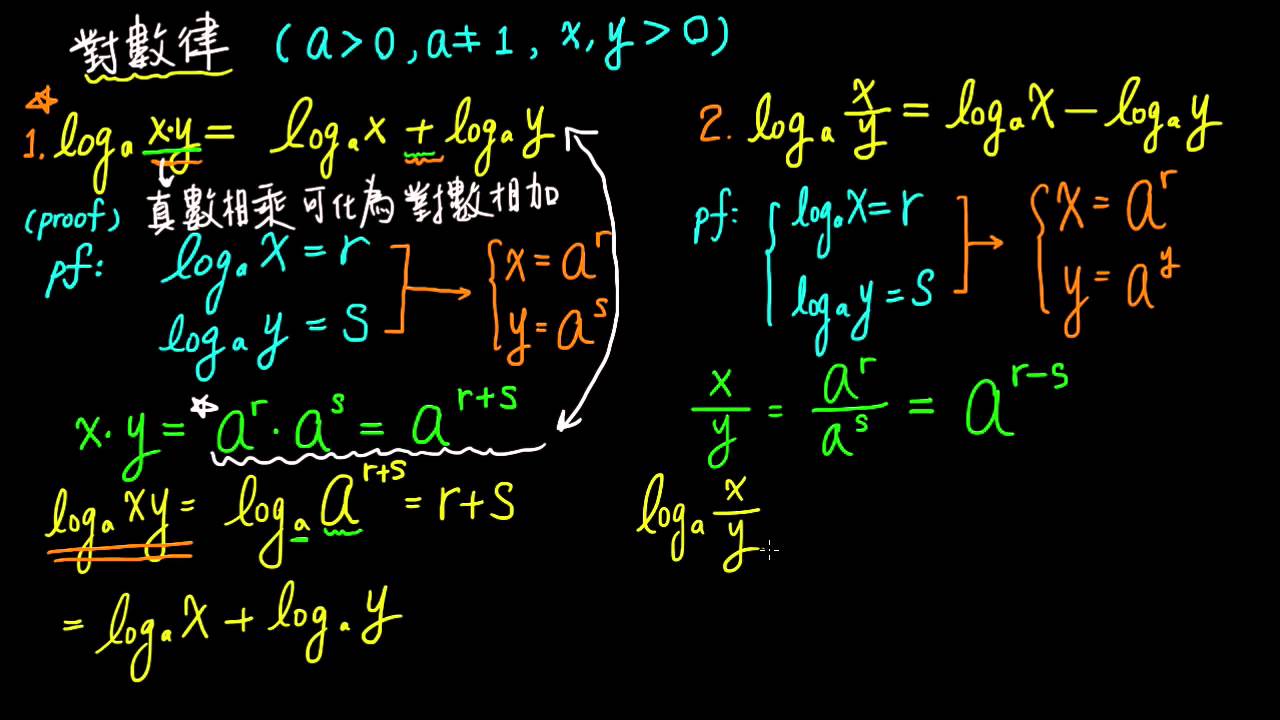 對數律 (a>0, a≠1, x, y>0)
1. logₐ x·y = logₐ x + logₐ y
真數相乘可化為對數相加
(proof)
pf:
logₐ x = r
logₐ y = s
x = aʳ
y = aˢ
x·y = aʳ·aˢ = aʳ⁺ˢ
logₐ xy = logₐ aʳ⁺ˢ = r+s
= logₐ x + logₐ y
2. logₐ x/y = logₐ x − logₐ y
pf:
logₐ x = r
logₐ y = s
x = aʳ
y = aʸ
x/y = aʳ/aˢ = aʳ⁻ˢ
logₐ x/y